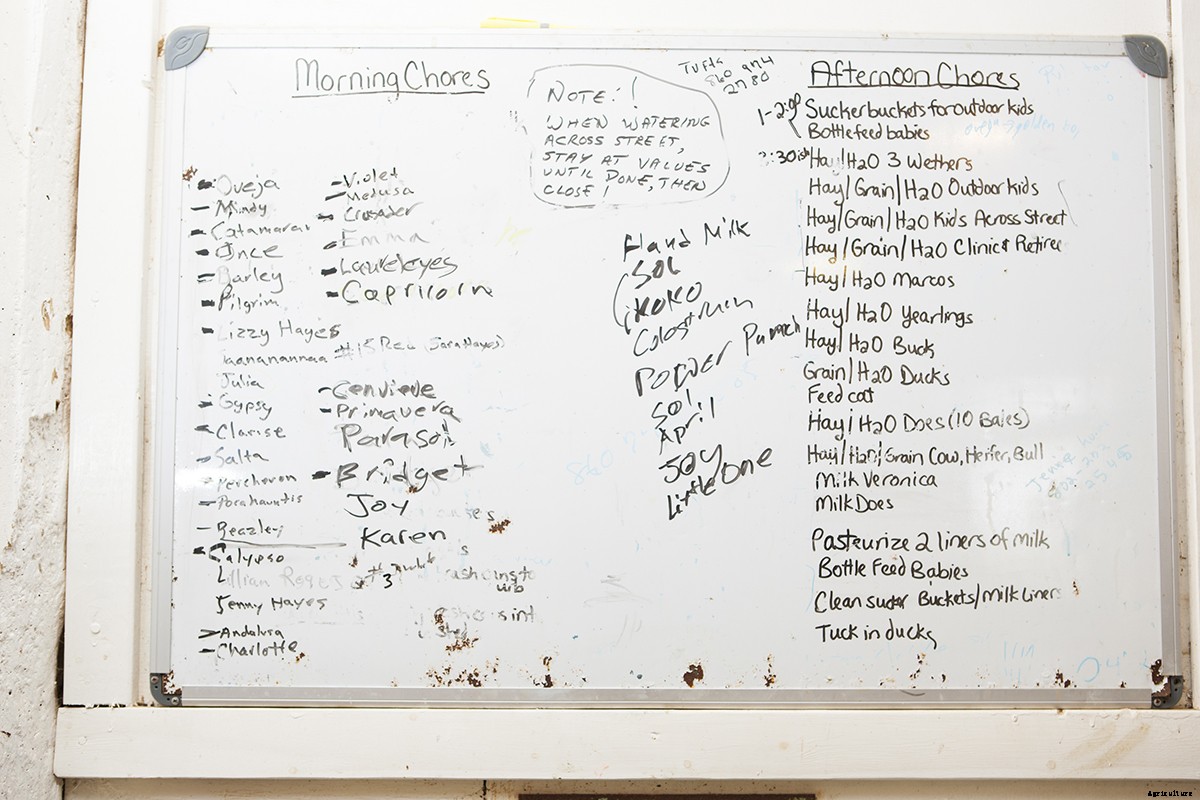 Morning Chores
- Oveja
- Mindy
- Catamaran
- Once
- Barley
- Pilgrim
- Lizzy Hayes
Taananannaa
Julia
- Gypsy
- Clarise
- Salta
- Percheron
- Pocahauntis
- Beazley
- Calypso
Lillian
Jenny Hayes
> Andalusa
- Charlotte
- Violet
- Medusa
- Crusader
- Emma
- Laureleyes
- Capricorn
#15 Red (Sara Hayes)
- Genvieve
- Primavera
Parasol
- Bridget
Joy
Karen
#3
NOTE:!
WHEN WATERING
ACROSS STREET,
STAY AT VALUES
UNTIL DONE, THEN
CLOSE!
TUFTS
860 974
2780
Hand Milk
Sol
Koko
Colostrum
Power Punch
Sol,
April
Joy
Little One
Afternoon Chores
1-2:00 Sucker buckets for outdoor kids
Bottle feed babies
:30ish Hay/H2O 3 Wethers
Hay/Grain/H2O Outdoor kids
Hay/Grain/H2O Kids Across Street
Hay/Grain/H2O Clinic & Retiree
Hay/H2O Marcos
Hay/H2O Yearlings
Hay/H2O Buck
Grain/H2O Ducks
Feed cat
Hay/H2O Does (10 Bales)
Hay/H2O/Grain Cow, Heifer, Bull
Milk Veronica
Milk Does
Pasteurize 2 liners of milk
Bottle Feed Babies
Clean sucker Buckets/Milk Liners
Tuck in ducks
Agriculture